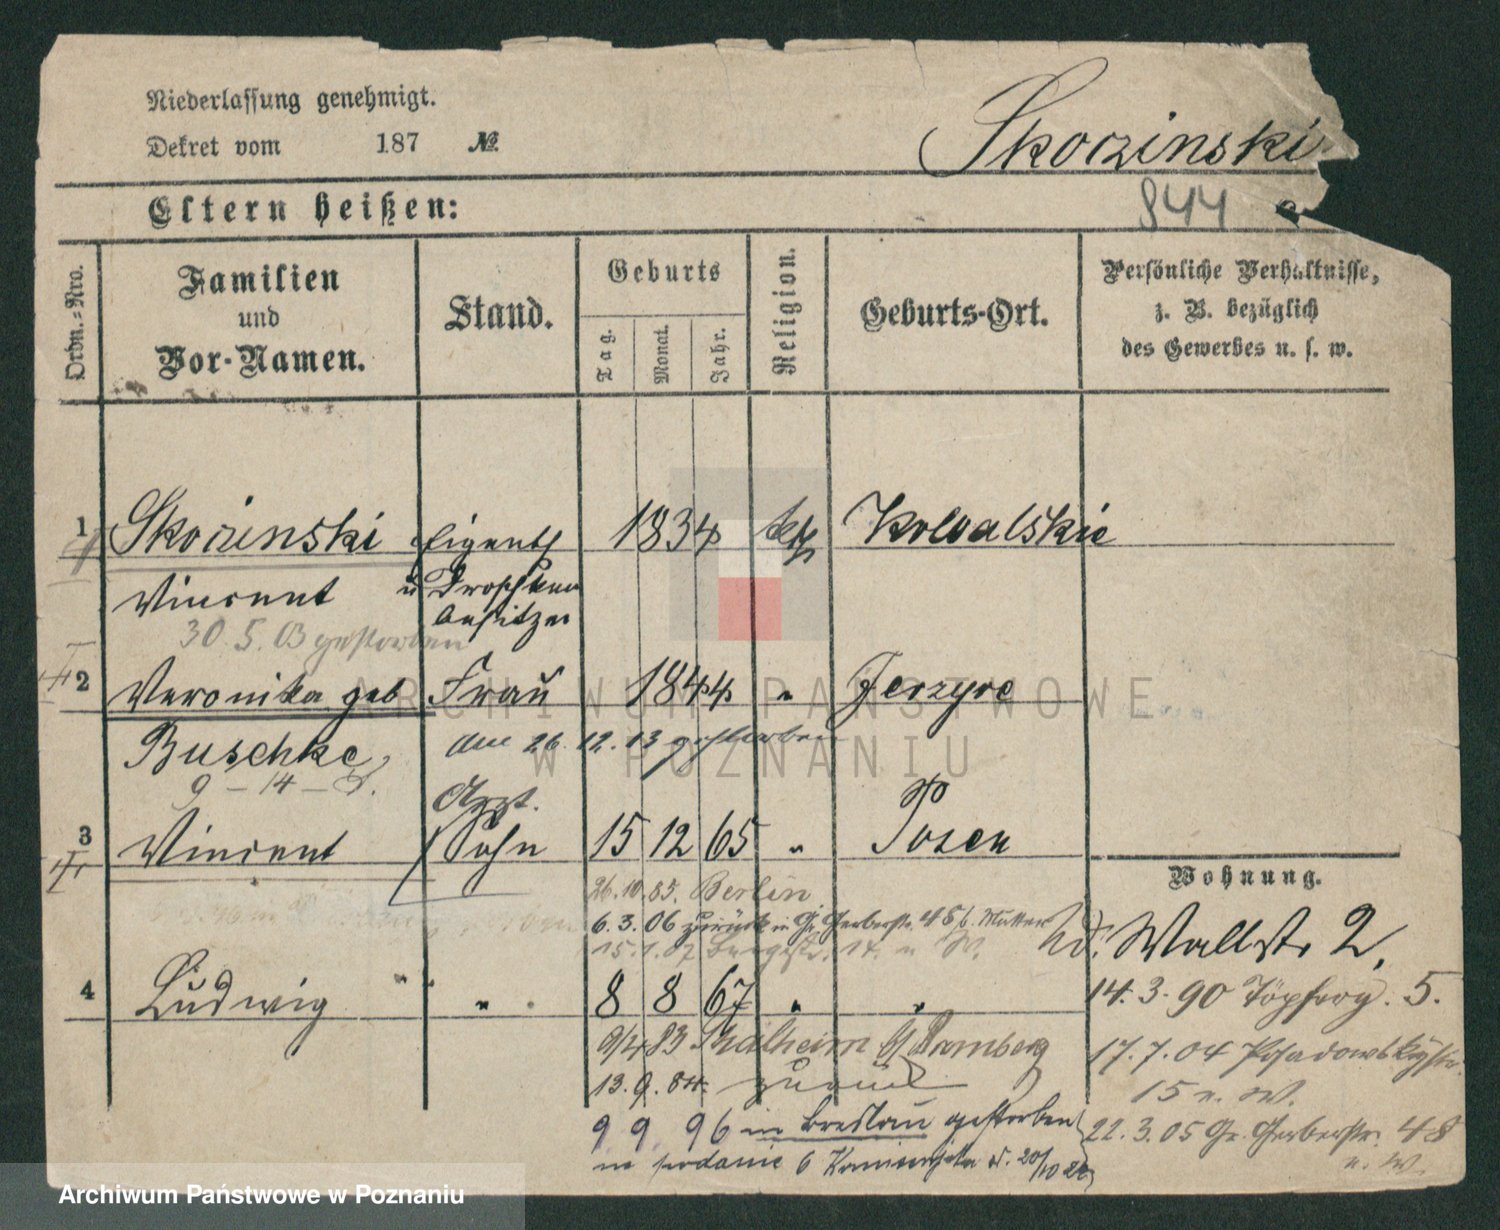 Niederlassung genehmigt.
Dekret vom 187 №
Skoczinski
844
Eltern heißen:
Ordn.-Nro.
Familien
und
Vor-Namen.
Stand.
Geburts
Tag.
Monat.
Jahr.
Religion.
Geburts-Ort.
Persönliche Verhältnisse,
z. B. bezüglich
des Gewerbes u. s. w.
1 Skoczinski Eigenth 1834 kth Kowalskie
Vincent u Droschken
besitzer
30. 5. 03 gestorben
2 Veronika geb Frau 1844 " Jerzyce
Buschke, am 26. 12. 13 gestorben
9 - 14 -
Arzt.
3 Vincent Sohn 15 12 65 " Posen
Wohnung.
26. 10. 85. Berlin
6. 3. 06 zurück in Gr. Gerberstr. 48 b. Mutter
Wallstr 2,
15. 1. 07
4 Ludwig " " 8 8 67 " "
14. 3. 90 Töpferg. 5.
9/4 83 Bamberg
17. 7. 04 Posadowskystr.
13. 9. 84. zurück
15 u. W.
9 9. 96 in Breslau gestorben
22. 3. 05 Gr. Gerberstr. 48
u. W.
na podanie 20/10 22
ARCHIWUM PAŃSTWOWE
W POZNANIU
Archiwum Państwowe w Poznaniu